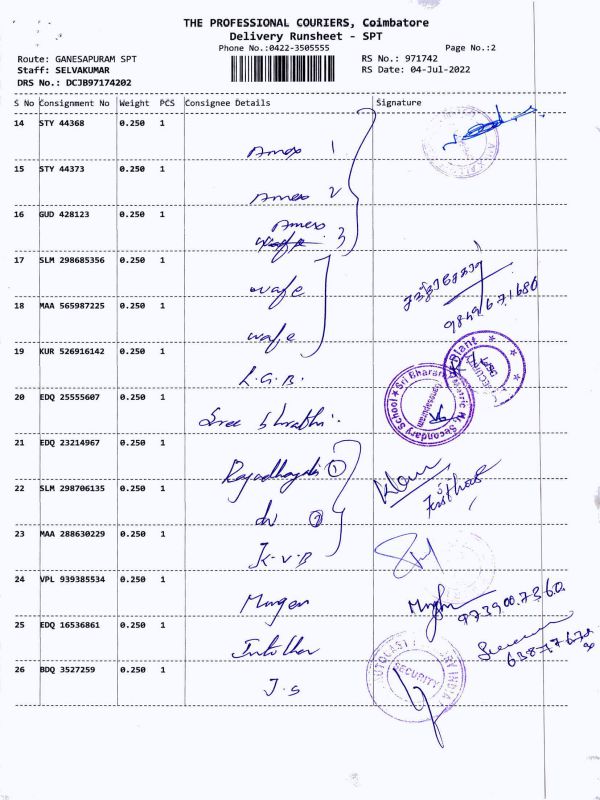 THE PROFESSIONAL COURIERS, Coimbatore
Delivery Runsheet - SPT
Phone No.:0422-3505555
Page No.:2
Route: GANESAPURAM SPT
RS No.: 971742
Staff: SELVAKUMAR
RS Date: 04-Jul-2022
DRS No.: DCJB97174202
S No Consignment No Weight PCS Consignee Details Signature
14 STY 44368 0.250 1
Amex 1
15 STY 44373 0.250 1
Amex 2
16 GUD 428123 0.250 1
Amex 3
17 SLM 298685356 0.250 1
wafe
18 MAA 565987225 0.250 1
wafe
19 KUR 526916142 0.250 1
L.G.B.
20 EDQ 25555607 0.250 1
Sree bharathi
21 EDQ 23214967 0.250 1
1
22 SLM 298706135 0.250 1
2
23 MAA 288630229 0.250 1
K-V-B
24 VPL 939385534 0.250 1
Murgan
25 EDQ 16536861 0.250 1
26 BDQ 3527259 0.250 1
J.S
SECURITY